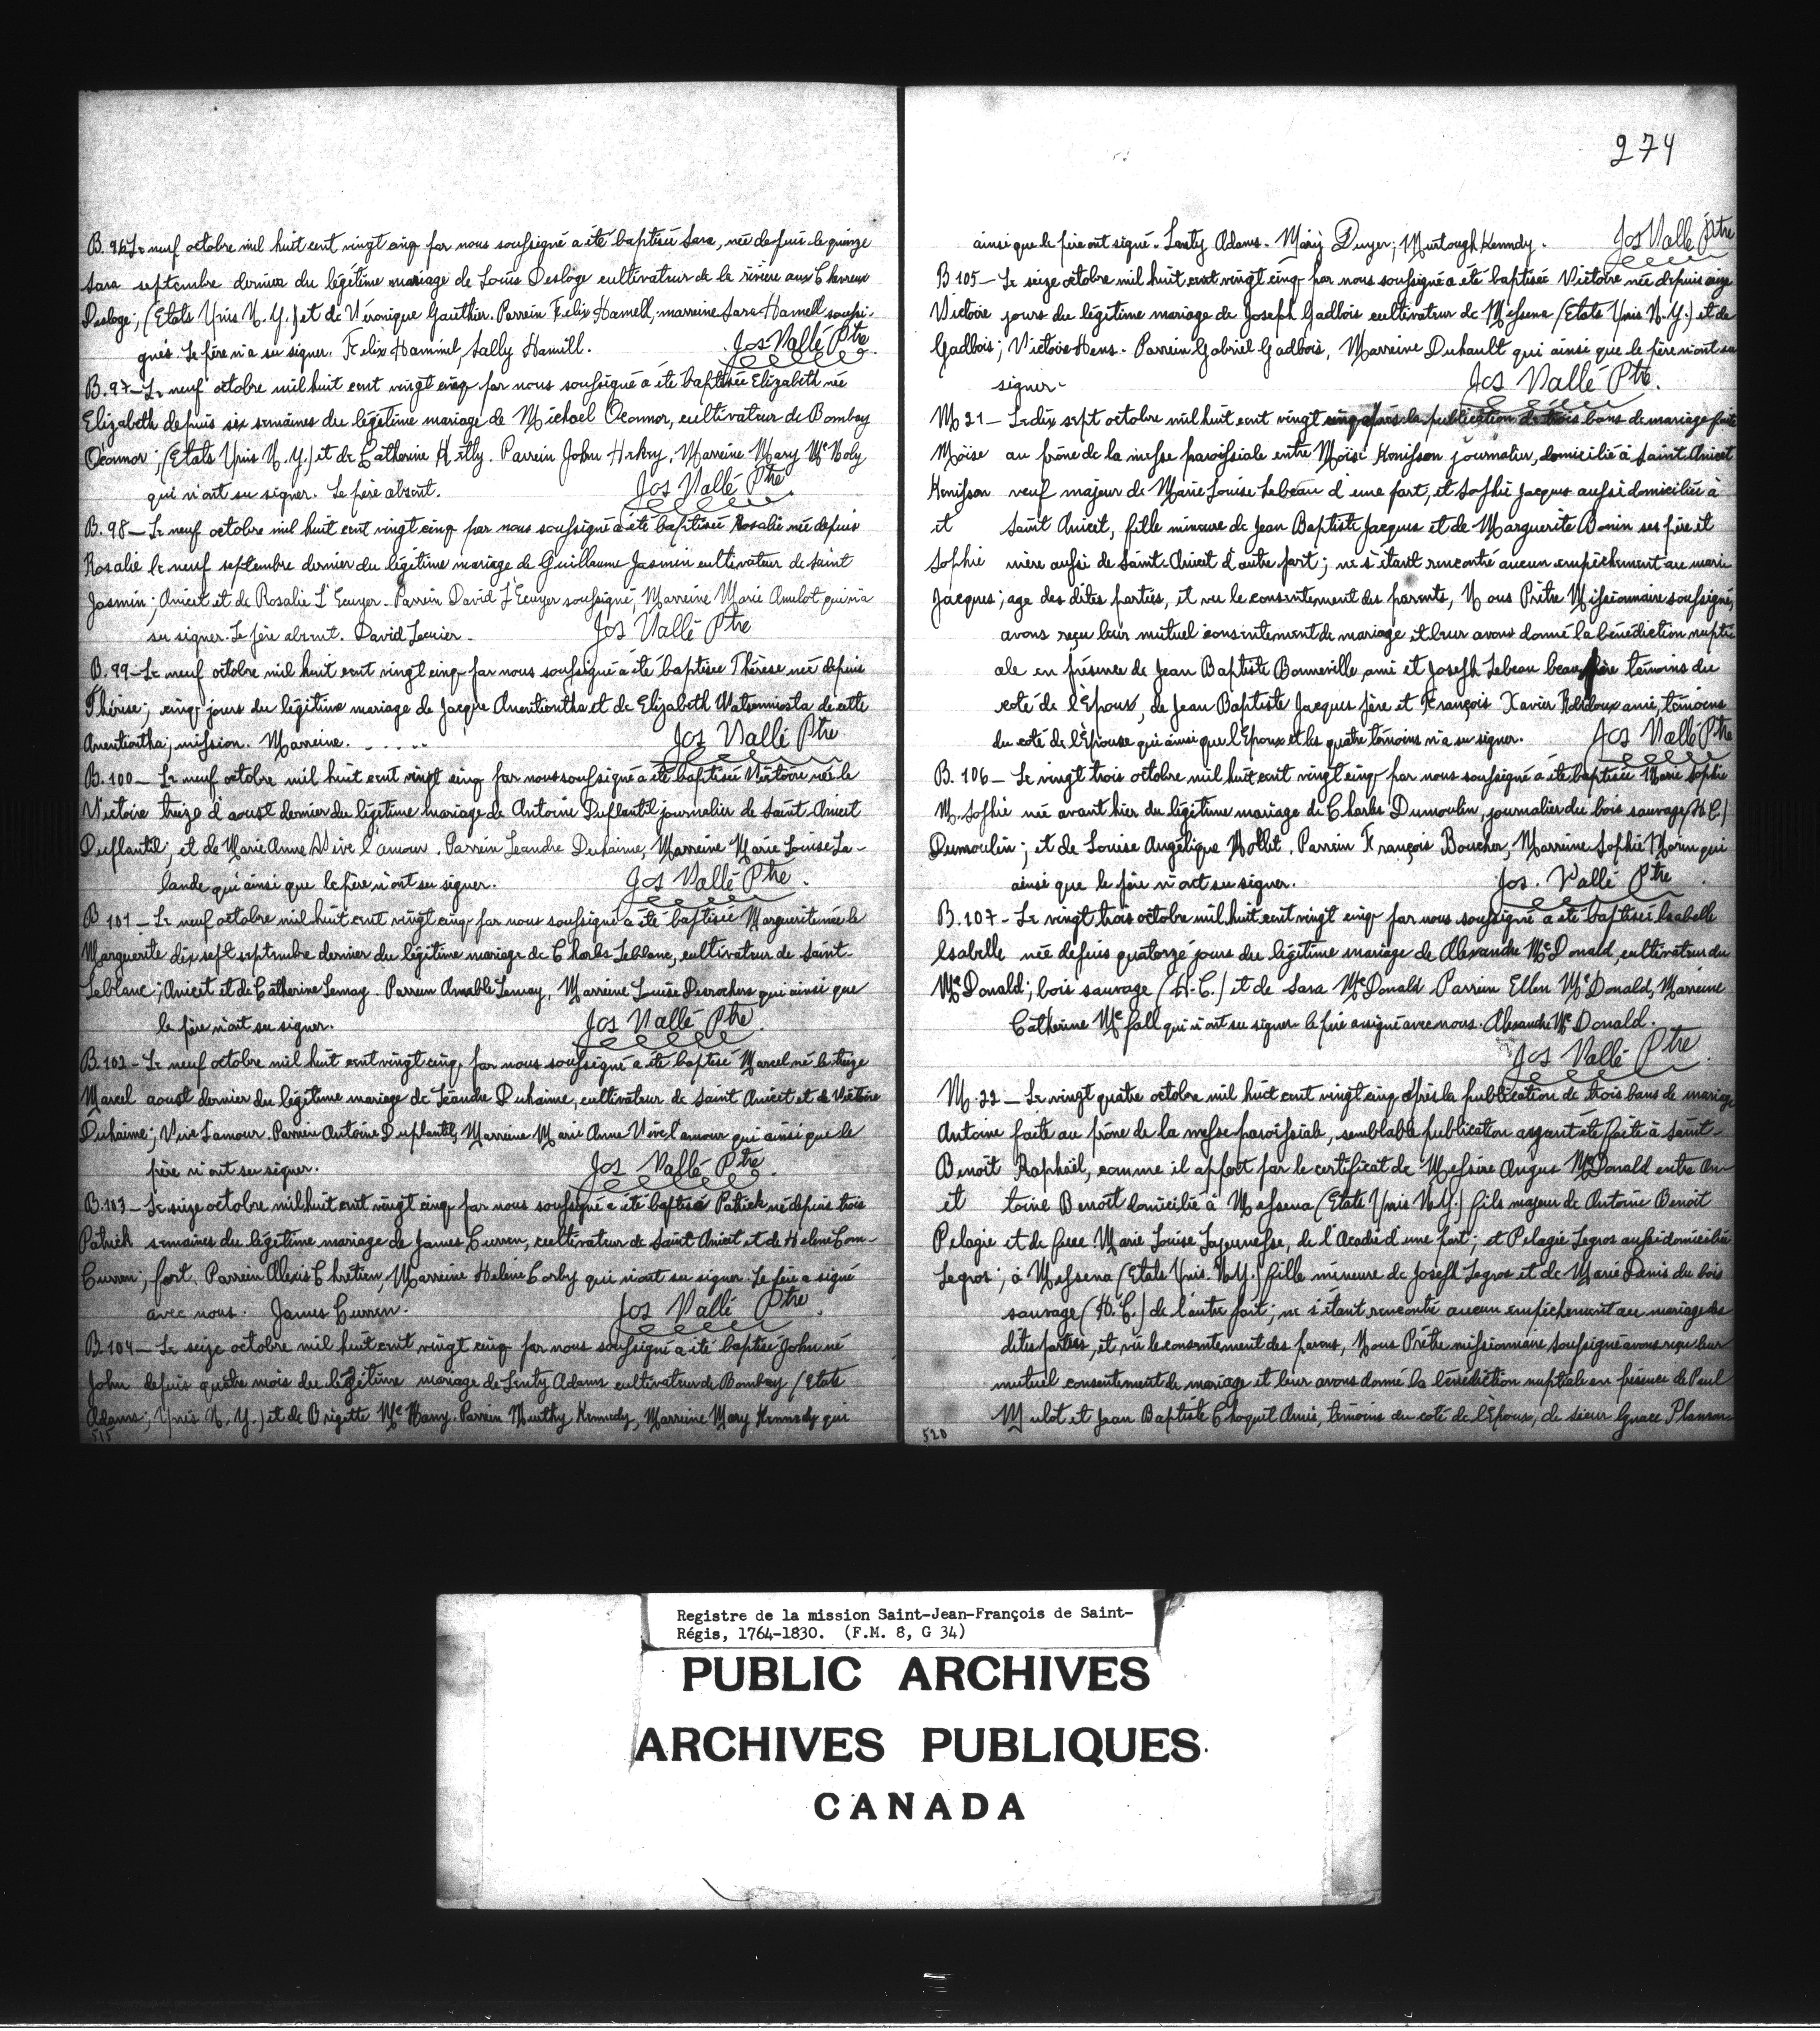 B. 96 Le neuf octobre mil huit cent vingt cinq par nous soussigné a été baptisée Sara, née depuis le quinze
Sara septembre dernier du légitime mariage de Louis Desloge cultivateur de la rivière aux Chevreux
Desloge; (Etats Unis N. Y.) et de Véronique Gauthier. Parrein Felix Hamell, marreine Sara Hamell soussi-
gnés. Le père n'a su signer. Felix Hammel, Sally Hamill. Jos Vallé Ptre
B. 97 - Le neuf octobre mil huit cent vingt cinq par nous soussigné a été baptisée Elizabeth née
Elizabeth depuis six semaines du légitime mariage de Michael Oconnor, cultivateur de Bombay
Oconnor; (Etats Unis N. Y.) et de Catherine Marreine Mary
qui n'ont su signer. Le père absent. Jos Vallé Ptre
B. 98 - Le neuf octobre mil huit cent vingt cinq par nous soussigné a été baptisée Rosalie née depuis
Rosalie le neuf septembre dernier du légitime mariage de Guillaume Jasmin cultivateur de Saint
Jasmin; Anicet et de Rosalie L'Ecuyer. Parrein David L'Ecuyer soussigné, Marreine Marie Amelot qui n'a
su signer. Le père absent. David Lecuier - Jos Vallé Ptre
B. 99 - Le neuf octobre mil huit cent vingt cinq par nous soussigné a été baptisée Thérèse née depuis
Thérèse; cinq jours du légitime mariage de Jacque Anentiontha et de Elizabeth de cette
Anentiontha; mission. Marreine. . . . . . Jos Vallé Ptre
B. 100 - Le neuf octobre mil huit cent vingt cinq par nous soussigné a été baptisée Victoire née le
Victoire treize d'aoust dernier du légitime mariage de Antoine Duplantil journalier de Saint Anicet
Duplantil; et de Marie Anne Vive l'amour. Parrein Leandre Duhaime, Marreine Marie Louise La-
lande qui ainsi que le père n'ont su signer. Jos Vallé Ptre.
B 101 - Le neuf octobre mil huit cent vingt cinq par nous soussigné a été baptisée Marguerite née le
Marguerite dix sept septembre dernier du légitime mariage de Charles Leblanc, cultivateur de Saint-
Leblanc; Anicet et de Catherine Lemay. Parrein Amable Lemay, Marreine Louise Desrochers qui ainsi que
le père n'ont su signer. Jos Vallé Ptre.
B. 102 - Le neuf octobre mil huit cent vingt cinq, par nous soussigné a été baptisé Marcel né le treize
Marcel aoust dernier du légitime mariage de Léandre Duhaime, cultivateur de Saint Anicet et de Victoire
Duhaime; Vive L'amour. Parrein Antoine Duplantil, Marreine Marie Anne Vive l'amour qui ainsi que le
père n'ont su signer. Jos Vallé Ptre.
B. 103 - Le seize octobre mil huit cent vingt cinq par nous soussigné a été baptisé Patrick né depuis trois
Patrick semaines du légitime mariage de James Curren, cultivateur de Saint Anicet et de Helene Com-
Curren; fort. Parrein Alexis Chretien, Marreine Helene Corby qui n'ont su signer. Le père a signé
avec nous. James Curren. Jos Vallé Ptre.
B 104 - Le seize octobre mil huit cent vingt cinq par nous soussigné a été baptisé John né
John depuis quatre mois du légitime mariage de Lenty Adams cultivateur de Bombay (Etats
Adams; Unis N. Y.) et de Brigette Parrein Kennedy, Marreine Mary Kennedy qui
515
274
ainsi que le père ont signé. Lenty Adams. Mary Dwyer; Murtough Kennedy. Jos Vallé Ptre
B 105 - Le seize octobre mil huit cent vingt cinq par nous soussigné a été baptisée Victoire née depuis seize
Victoire jours du légitime mariage de Joseph Gadbois cultivateur de Messena (Etats Unis N. Y.) et de
Gadbois; Victoire Hens. Parrein Gabriel Gadbois, Marreine Duhault qui ainsi que le père n'ont su
signer - Jos Vallé Ptre.
M 21 - Le dix sept octobre mil huit cent vingt cinq après la publication de trois bans de mariage faite
Moïse au prône de la messe paroissiale entre Moïse Henisson journalier, domicilié à Saint Anicet
Henisson veuf majeur de Marie Louise Lebeau d'une part, et Sophie Jacques aussi domiciliée à
et Saint Anicet, fille mineure de Jean Baptiste Jacques et de Marguerite Bonin ses père et
Sophie mère aussi de Saint Anicet d'autre part; ne s'étant rencontré aucun empêchement au mari-
Jacques; age des dites parties, et vu le consentement des parents, Nous Prêtre Missionnaire soussigné,
avons reçu leur mutuel consentement de mariage et leur avons donné la bénédiction nupti-
ale en présence de Jean Baptiste Bonneville ami et Joseph Lebeau beau père témoins du
coté de l'Epoux, de Jean Baptiste Jacques père et François Xavier Robidoux ami, témoins
du coté de l'Epouse qui ainsi que l'Epoux et les quatre témoins n'a su signer. Jos Vallé Ptre
B. 106 - Le vingt trois octobre mil huit cent vingt cinq par nous soussigné a été baptisée Marie Sophie
M. Sophie née avant hier du légitime mariage de Charles Dumoulin, journalier du bois sauvage (H. C.)
Dumoulin; et de Louise Angélique Nollet. Parrein François Boucher, Marreine Sophie Morin qui
ainsi que le père n'ont su signer. Jos. Vallé Ptre
B. 107 - Le vingt trois octobre mil huit cent vingt cinq par nous soussigné a été baptisée Isabelle
Isabelle née depuis quatorze jours du légitime mariage de Alexandre McDonald, cultivateur du
McDonald; bois sauvage (H. C.) et de Sara McDonald Parrein Ellen McDonald, Marreine
Catherine Mcfall qui n'ont su signer le père a signé avec nous. Alexandre McDonald.
Jos Vallé Ptre.
M. 22 - Le vingt quatre octobre mil huit cent vingt cinq après la publication de trois bans de mariage
Antoine faite au prône de la messe paroissiale, semblable publication ayant été faite à Saint-
Benoît Raphaël, comme il appert par le certificat de Messire Angus McDonald entre An-
et toine Benoît domicilié à Messena (Etats Unis N. Y.) fils majeur de Antoine Benoît
Pelagie et de feue Marie Louise Lajeunesse, de l'Acadie d'une part; et Pelagie Legros aussi domiciliée
Legros; à Messena (Etats Unis. N. Y.) fille mineure de Joseph Legros et de Marie Danis du bois
sauvage (H. C.) de l'autre part; ne s'étant rencontré aucun empêchement au mariage des
dites parties, et vu le consentement des parens, Nous Prêtre missionnaire soussigné avons reçu leur
mutuel consentement de mariage et leur avons donné la bénédiction nuptiale en présence de Paul
Mulot et Jean Baptiste Choquet Amis, témoins du coté de l'Epoux, de sieur Ignace
520
Registre de la mission Saint-Jean-François de Saint-
Régis, 1764-1830. (F.M. 8, G 34)
PUBLIC ARCHIVES
ARCHIVES PUBLIQUES
CANADA